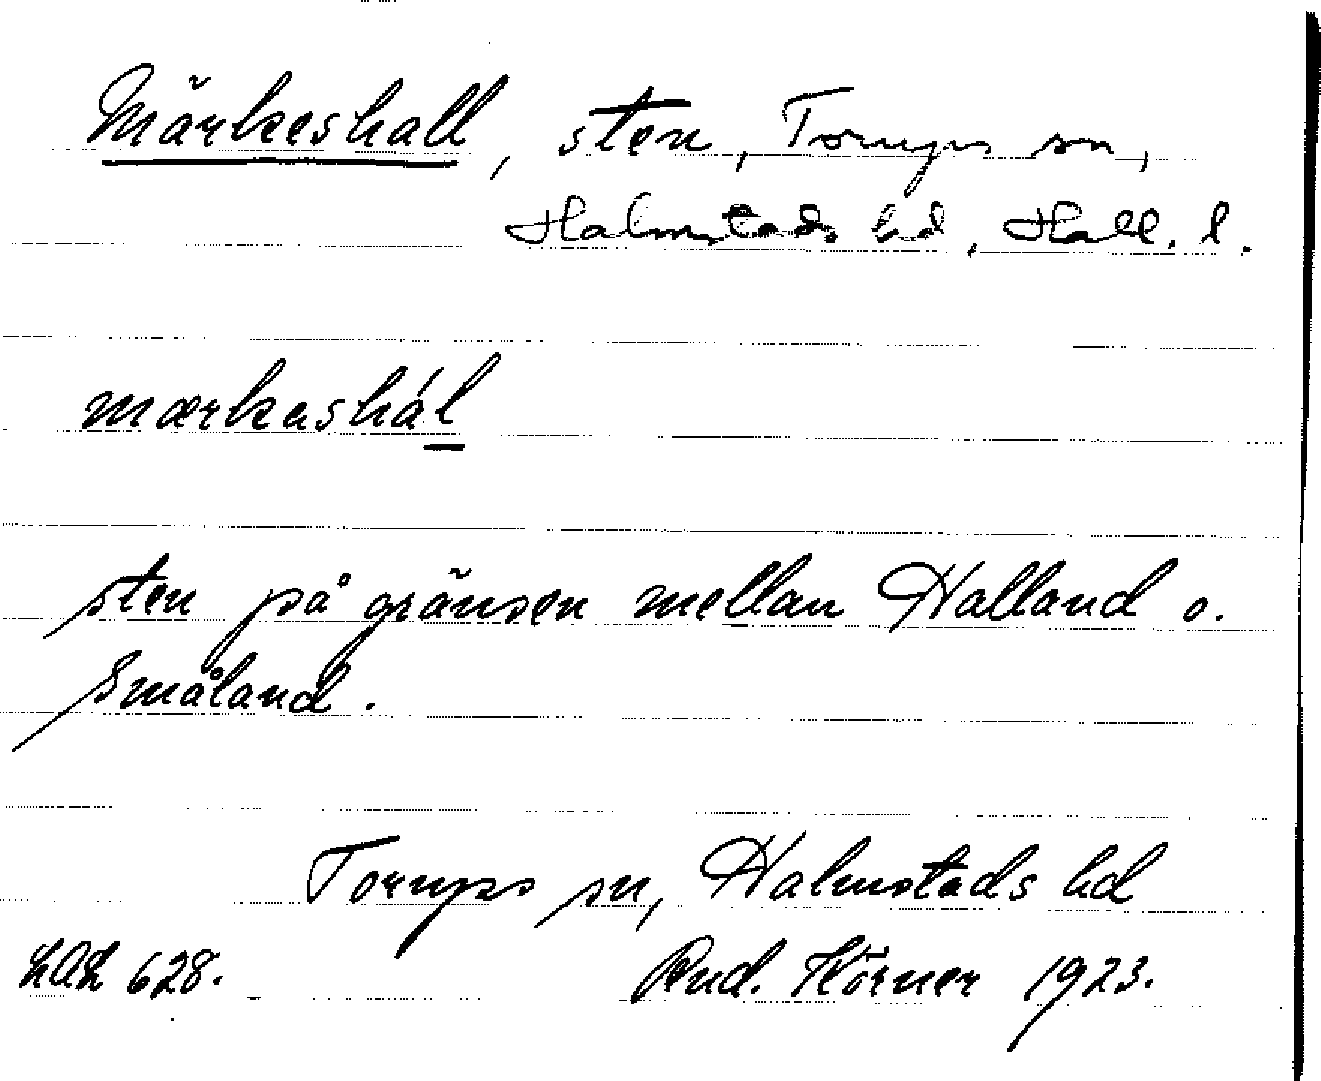 Märkeshall, sten, Torups sn,
Halmstads hd, Hall. l.
mærkashál
sten på gränsen mellan Halland o.
Småland.
Torups sn, Halmstads hd
LAL 628. Rud. Hörner 1923.